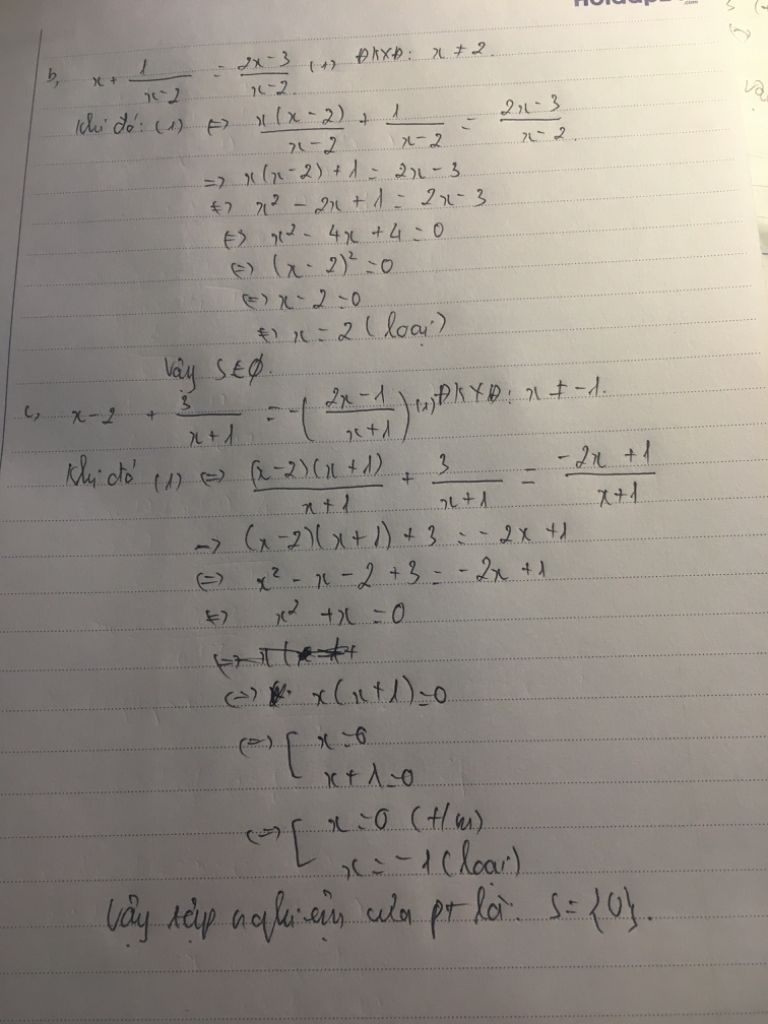 b, x + \frac{1}{x-2} = \frac{2x-3}{x-2} (1) ĐKXĐ: x ≠ 2.
Khi đó: (1) <=> \frac{x(x-2)}{x-2} + \frac{1}{x-2} = \frac{2x-3}{x-2}.
=> x(x-2) + 1 = 2x - 3
<=> x² - 2x + 1 = 2x - 3
<=> x² - 4x + 4 = 0
<=> (x - 2)² = 0
<=> x - 2 = 0
<=> x = 2 (loại)
Vậy S ∈ Ø.
c, x - 2 + \frac{3}{x+1} = -(\frac{2x-1}{x+1}) (1) ĐKXĐ: x ≠ -1.
Khi đó (1) <=> \frac{(x-2)(x+1)}{x+1} + \frac{3}{x+1} = \frac{-2x+1}{x+1}
=> (x-2)(x+1) + 3 = -2x + 1
<=> x² - x - 2 + 3 = -2x + 1
<=> x² + x = 0
<=> x(x+1) = 0
<=> [ x = 0
x + 1 = 0
<=> [ x = 0 (t/m)
x = -1 (loại)
Vậy tập nghiệm của pt là: S = {0}.